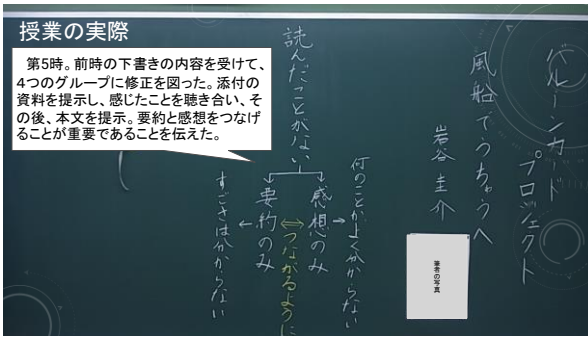 授業の実際
第5時。前時の下書きの内容を受けて、
4つのグループに修正を図った。添付の
資料を提示し、感じたことを聴き合い、そ
の後、本文を提示。要約と感想をつなげ
ることが重要であることを伝えた。
バルーンカード
プロジェクト
風船でうちゅうへ
岩谷圭介
筆者の写真
読んだことがない
感想のみ
→何のことかよく分からない
⇔つながるように
要約のみ
→すごさは分からない